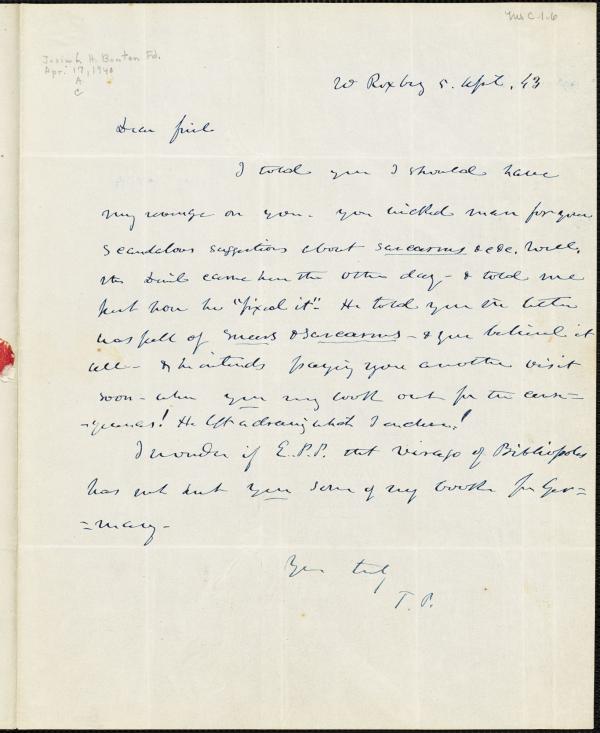 Ms C.1.6
Josiah H. Benton Fd.
Apr. 17, 1940
A
C
W Roxbry 5. Sept. 43
Dear friend
I told you I should have
my revenge on you. you wicked man for your
scandalous suggestions about sarcasms &c &c. Well,
the Devil came here the other day - & told me
just how he "fixed it" He told you the letter
was full of sneers & sarcasms - & you believed it
all - & he intends paying you another visit
soon - when you may look out for the conse=
=quences! He left a drawing which I enclose!
I wonder if E.P.P. that virago of Bibliopoles
has not sent you some of my books for Ger=
=many -
Yrs truly
T. P.